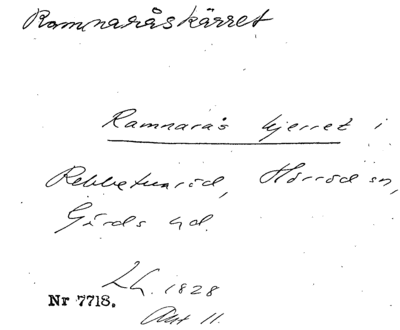 Ramnaråskärret
Ramnarås kjerret i
Rebbetuaröd, Hörröd sn,
Gärds hd.
LG. 1828
Nr 7718.
Akt 11.